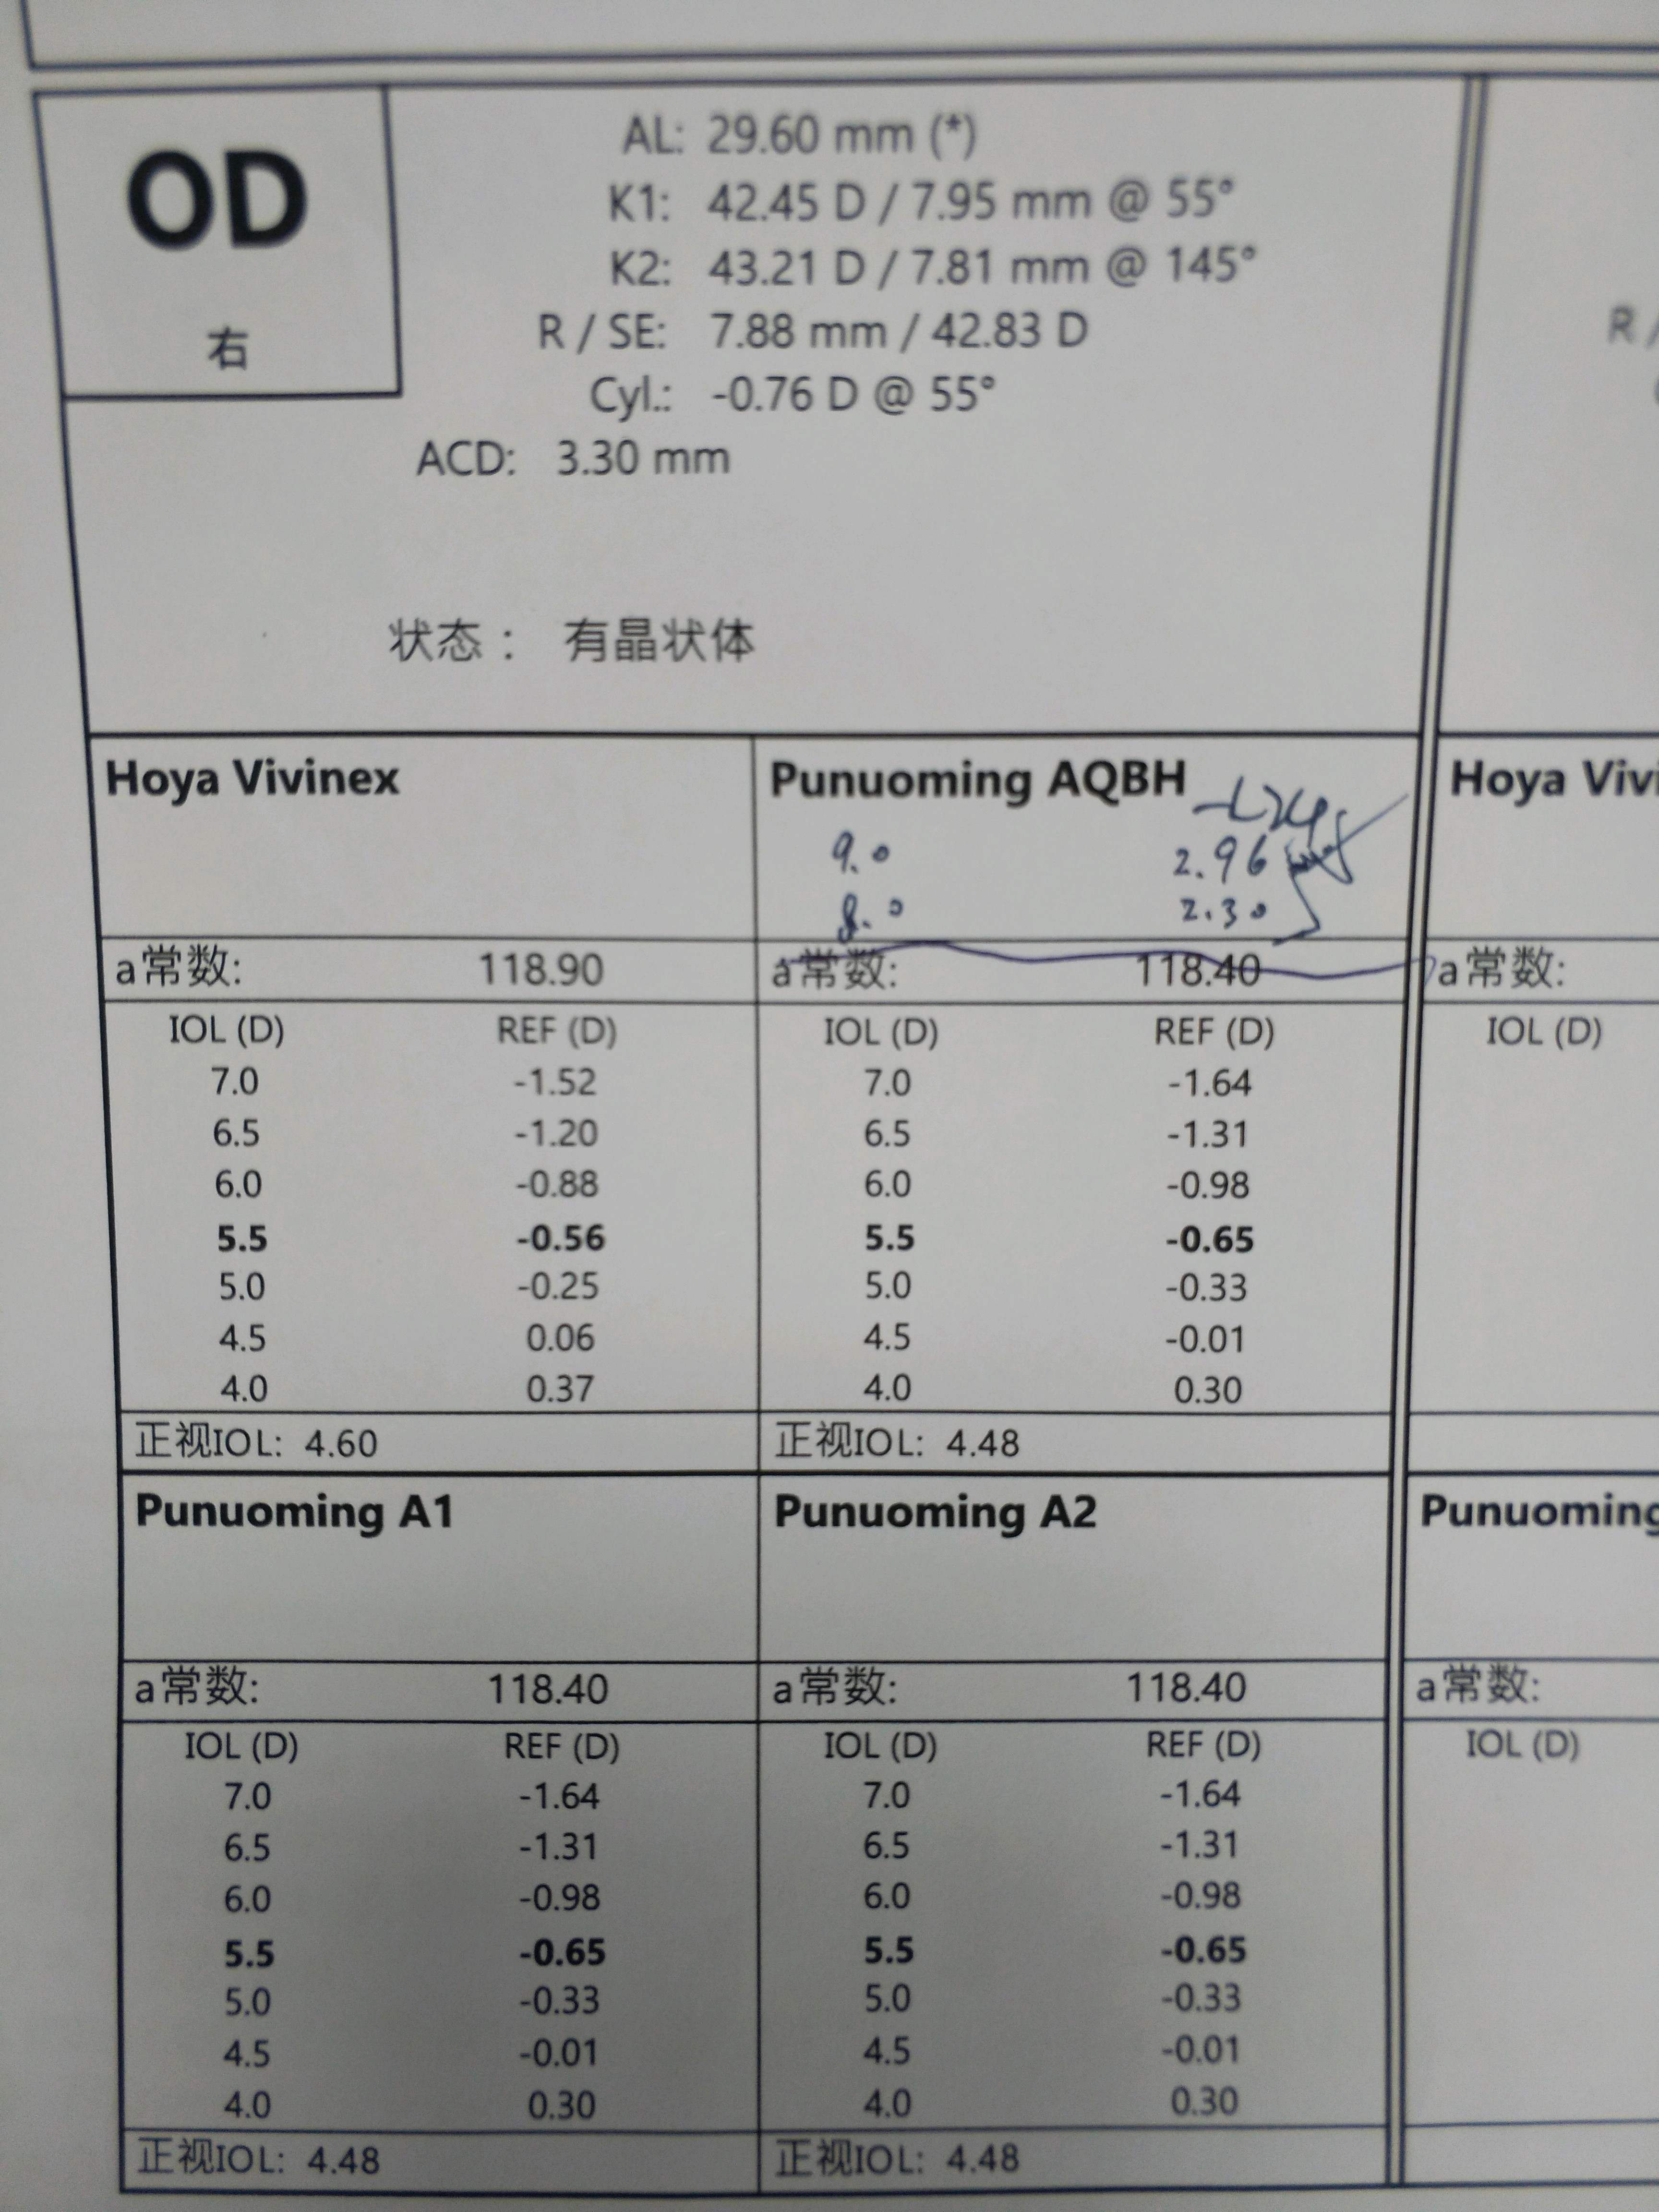 OD
右
AL: 29.60 mm (*)
K1: 42.45 D / 7.95 mm @ 55°
K2: 43.21 D / 7.81 mm @ 145°
R / SE: 7.88 mm / 42.83 D
Cyl.: -0.76 D @ 55°
ACD: 3.30 mm
状态： 有晶状体
R /
Hoya Vivinex
a常数: 118.90
IOL (D) REF (D)
7.0 -1.52
6.5 -1.20
6.0 -0.88
5.5 -0.56
5.0 -0.25
4.5 0.06
4.0 0.37
正视IOL: 4.60
Punuoming AQBH
9.0 2.96
8.0 2.30
a常数: 118.40
IOL (D) REF (D)
7.0 -1.64
6.5 -1.31
6.0 -0.98
5.5 -0.65
5.0 -0.33
4.5 -0.01
4.0 0.30
正视IOL: 4.48
Hoya Vivi
a常数:
IOL (D)
Punuoming A1
a常数: 118.40
IOL (D) REF (D)
7.0 -1.64
6.5 -1.31
6.0 -0.98
5.5 -0.65
5.0 -0.33
4.5 -0.01
4.0 0.30
正视IOL: 4.48
Punuoming A2
a常数: 118.40
IOL (D) REF (D)
7.0 -1.64
6.5 -1.31
6.0 -0.98
5.5 -0.65
5.0 -0.33
4.5 -0.01
4.0 0.30
正视IOL: 4.48
Punuoming
a常数:
IOL (D)